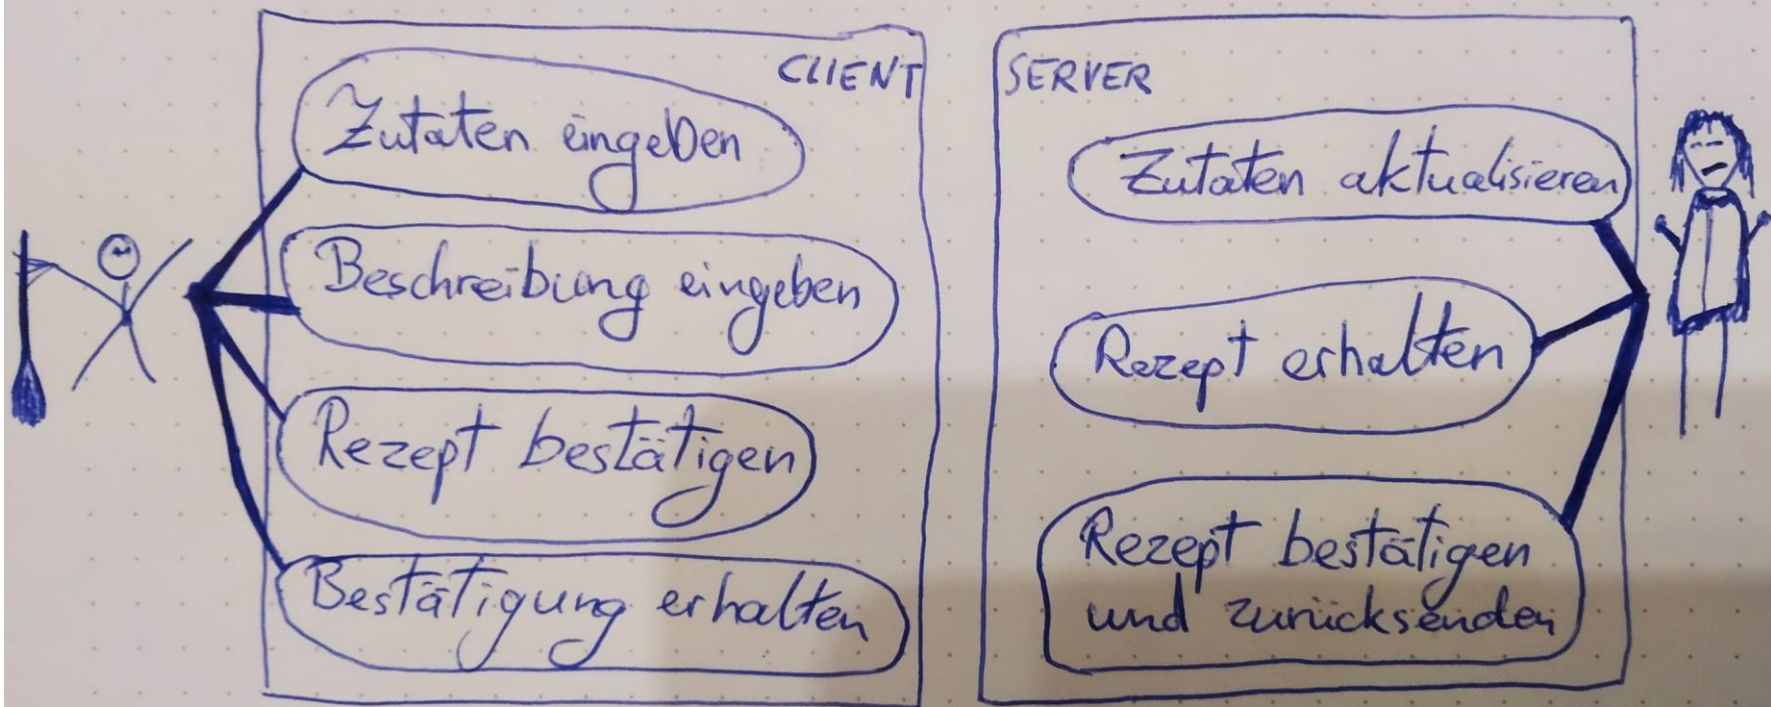 CLIENT
Zutaten eingeben
Beschreibung eingeben
Rezept bestätigen
Bestätigung erhalten
SERVER
Zutaten aktualisieren
Rezept erhalten
Rezept bestätigen
und zurücksenden